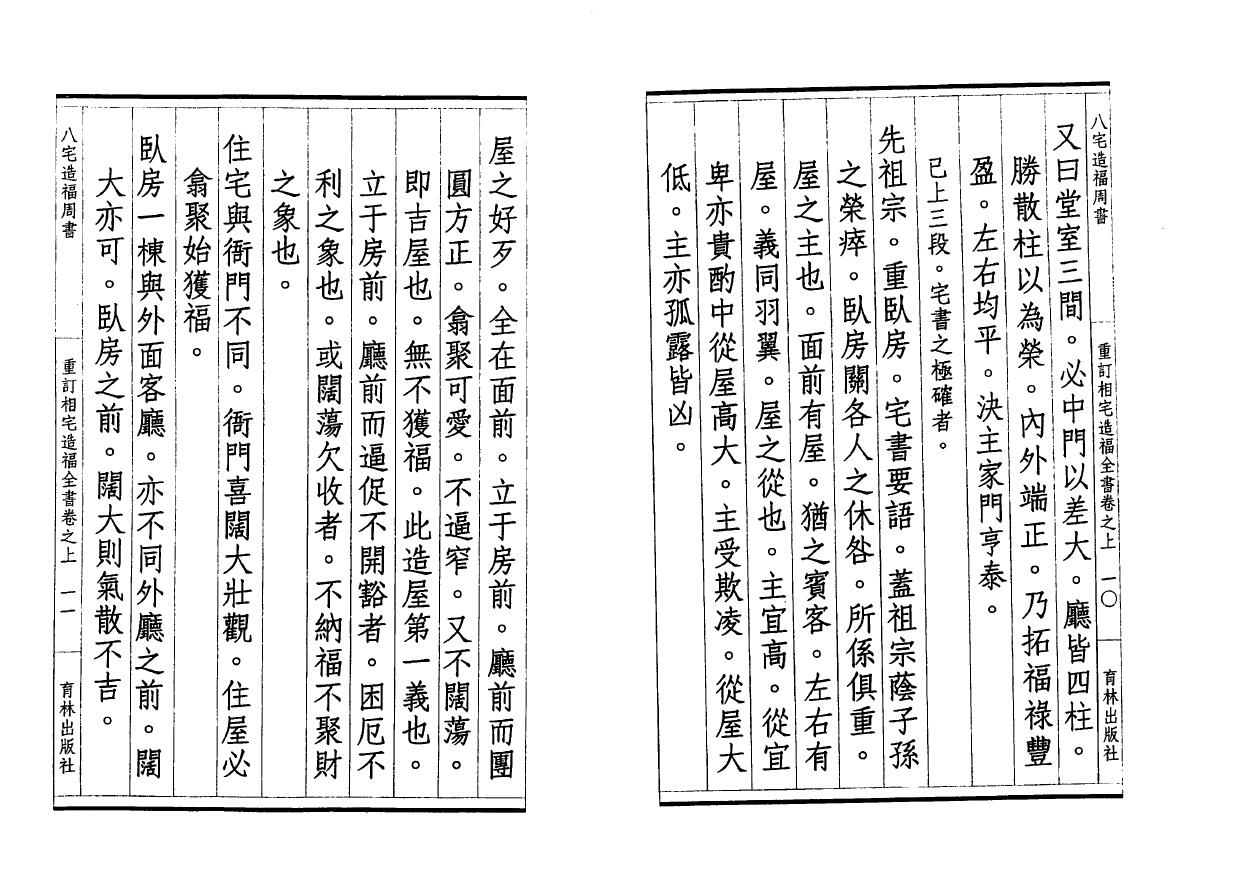 八宅造福周書　重訂相宅造福全書卷之上　一〇　育林出版社
又曰堂室三間。必中門以差大。廳皆四柱。
勝散柱以為榮。內外端正。乃拓福祿豐
盈。左右均平。決主家門亨泰。
已上三段。宅書之極確者。
先祖宗。重臥房。宅書要語。蓋祖宗蔭子孫
之榮瘁。臥房關各人之休咎。所係俱重。
屋之主也。面前有屋。猶之賓客。左右有
屋。義同羽翼。屋之從也。主宜高。從宜
卑亦貴酌中從屋高大。主受欺凌。從屋大
低。主亦孤露皆凶。
屋之好歹。全在面前。立于房前。廳前而團
圓方正。翕聚可愛。不逼窄。又不闊蕩。
即吉屋也。無不獲福。此造屋第一義也。
立于房前。廳前而逼促不開豁者。困厄不
利之象也。或闊蕩欠收者。不納福不聚財
之象也。
住宅與衙門不同。衙門喜闊大壯觀。住屋必
翕聚始獲福。
臥房一棟與外面客廳。亦不同外廳之前。闊
大亦可。臥房之前。闊大則氣散不吉。
八宅造福周書　重訂相宅造福全書卷之上　一一　育林出版社